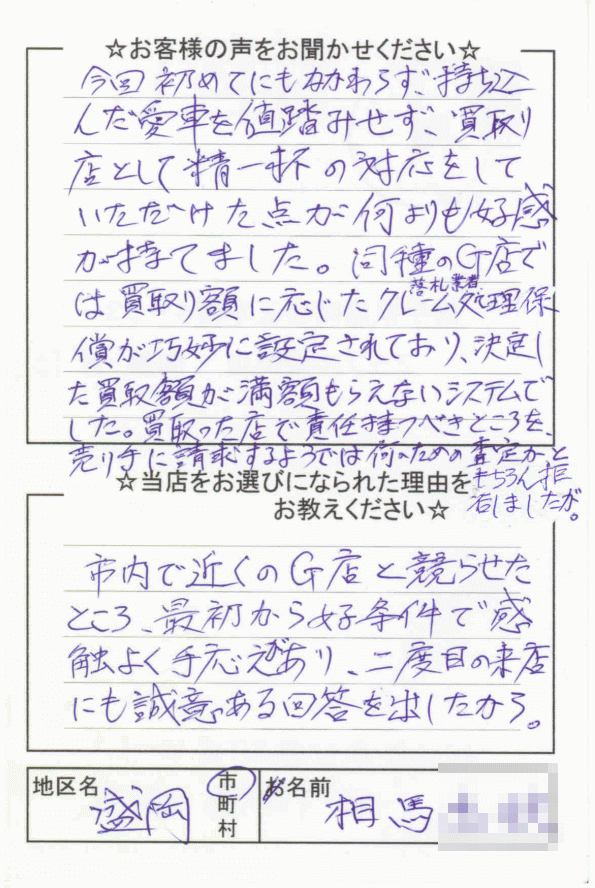 ☆お客様の声をお聞かせください☆
今回初めてにもかかわらず、持ち込
んだ愛車を値踏みせず、買取り
店として精一杯の対応をして
いただけた点が何よりも好感
が持てました。同種のG店で
は買取り額に応じたクレーム処理保
落札業者
償が巧妙に設定されており、決定し
た買取額が満額もらえないシステムで
した。買取った店で責任持つべきところを、
売り手に請求するようでは何のための査定かと
もちろん拒
否しましたが。
☆当店をお選びになられた理由を
お教えください☆
市内で近くのG店と競らせた
ところ、最初から好条件で感
触よく手応えがあり、二度目の来店
にも誠意ある回答を出したから。
地区名 盛岡 市 町 村 お名前 相馬